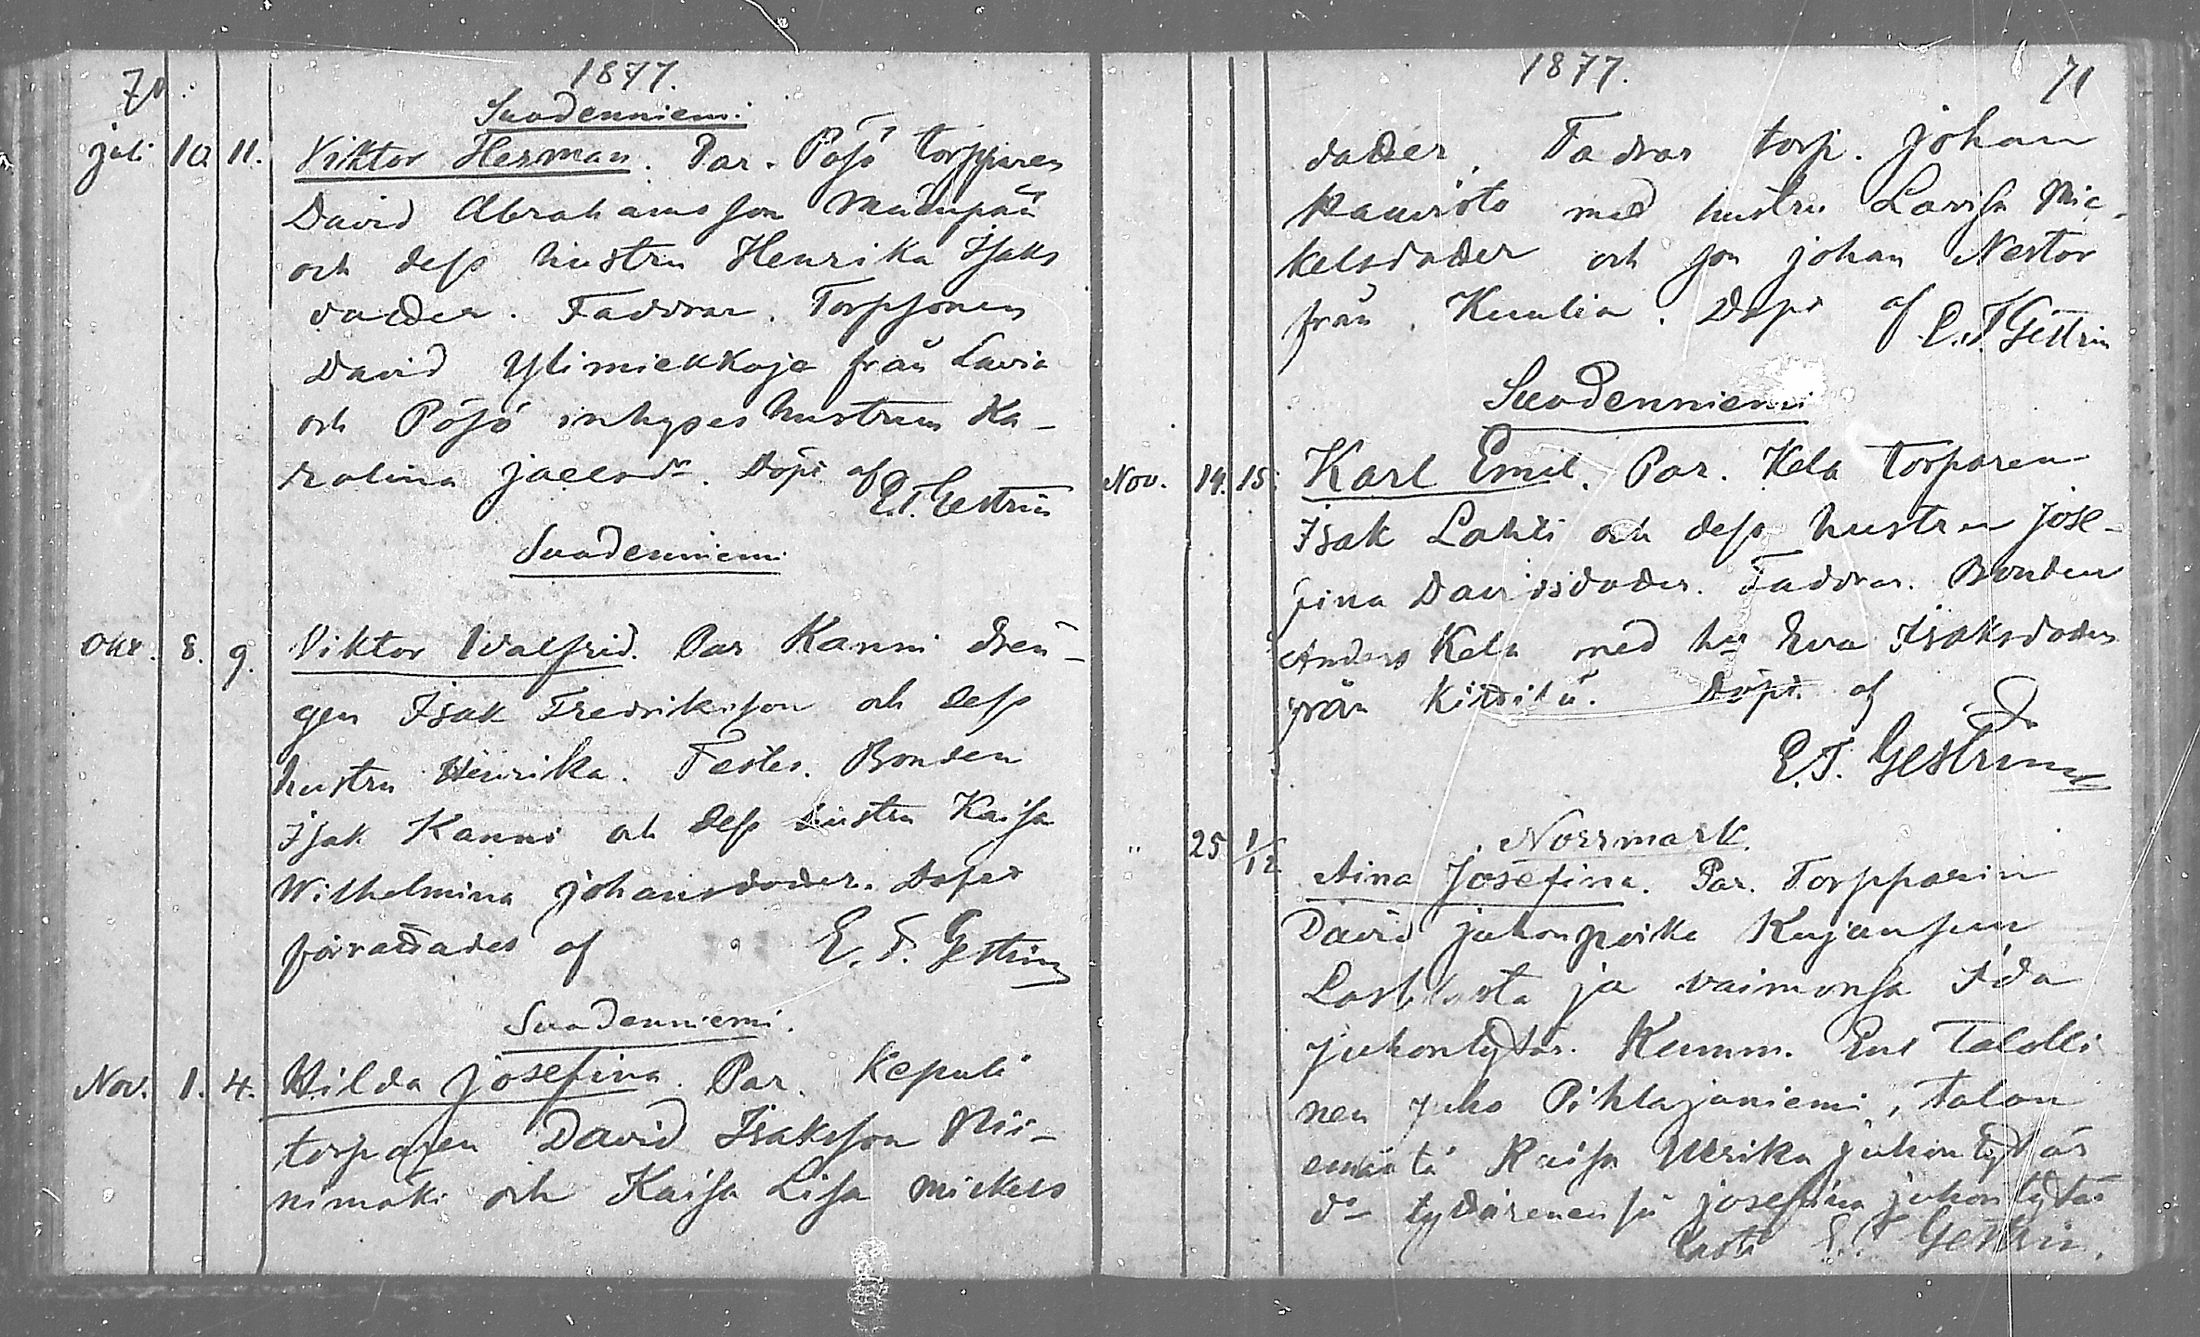 70.
1877.
Suodenniemi.
juli 10 11. Viktor Herman. Par. Pösö torparen
David Abrahamsson
och dess hustru Henrika Isaks
dotter. Faddrar. Torpsonen
David Ylimiekkoja från Lavia
och Pösö inhyses hustrun Ka-
rolina Döpt af
E. F. Gestrin
Suodenniemi
Okt. 8. 9. Viktor Walfrid. Par Kanni drän-
gen Isak Fredriksson och dess
hustru Henrika. Testes. Bonden
Isak Kanni och dess hustru Kaisa
Wilhelmina Johansdotter. Dopet
förrättades af E. F. Gestrin
Suodenniemi.
Nov. 1. 4. Hilda Josefina. Par. Keputi
torparen David Isaksson Nii-
nimäki och Kaisa Lisa Mickels
1877.
71
dotter. Fadrar torp. Johan
med hustru Lovisa Mic-
kelsdotter och son Johan Nestor
från Kuulia. Döpt af E. F. Gestrin
Suodenniemi
Nov. 14. 15. Karl Emil. Par. Kela torparen
Isak Lahti och dess hustru Jose-
fina Davidsdotter. Faddrar. Bonden
Anders Kela med hu Eva Isaksdotter
från Döpt af
E. F. Gestrin
Norrmark.
" 25 1/12 Aina Josefina. Par. Torpparin
David Juhonpoika Kujansuun
ja vaimonsa Ida
Juhontytär. Kumm. Ent Talolli
nen Juho Pihlajaniemi, talon
emäntä Kaisa Ulrika Juhontytär
do tyttärenensä Josefina Juhontytär
Kasti E. F. Gestrin.